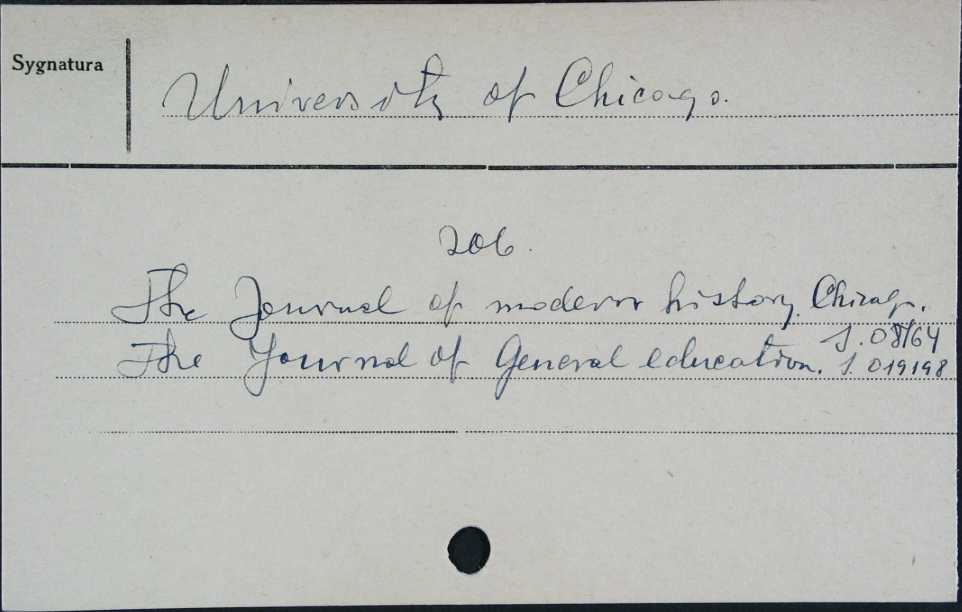 Sygnatura
University of Chicago.
206.
The Journal of modern history. Chicago.
S. 08164
The Journal of General education. S. 019198